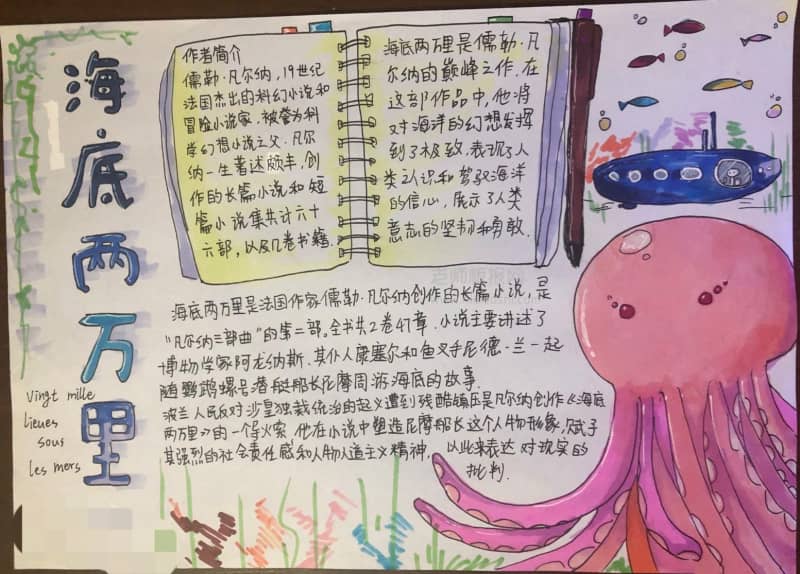 海底两万里
Vingt mille
lieues
sous
les mers
作者简介
儒勒·凡尔纳,19世纪
法国杰出的科幻小说和
冒险小说家.被誉为科
学幻想小说之父.凡尔
纳一生著述颇丰,创
作的长篇小说和短
篇小说集共计六十
六部,以及几卷书籍.
海底两万里是儒勒·凡
尔纳的巅峰之作.在
这部作品中,他将
对海洋的幻想发挥
到了极致,表现了人
类认识和驾驭海洋
的信心,展示了人类
意志的坚韧和勇敢.
海底两万里是法国作家儒勒·凡尔纳创作的长篇小说.是
"凡尔纳三部曲"的第二部.全书共2卷47章.小说主要讲述了
博物学家阿龙纳斯.其仆人康塞尔和鱼叉手尼德·兰一起
随鹦鹉螺号潜艇船长尼摩周游海底的故事.
波兰人民反对沙皇独裁统治的起义遭到残酷镇压是凡尔纳创作《海底
两万里》的一个导火索,他在小说中塑造尼摩船长这个人物形象,赋予
其强烈的社会责任感和人物人道主义精神,以此来表达对现实的
批判.